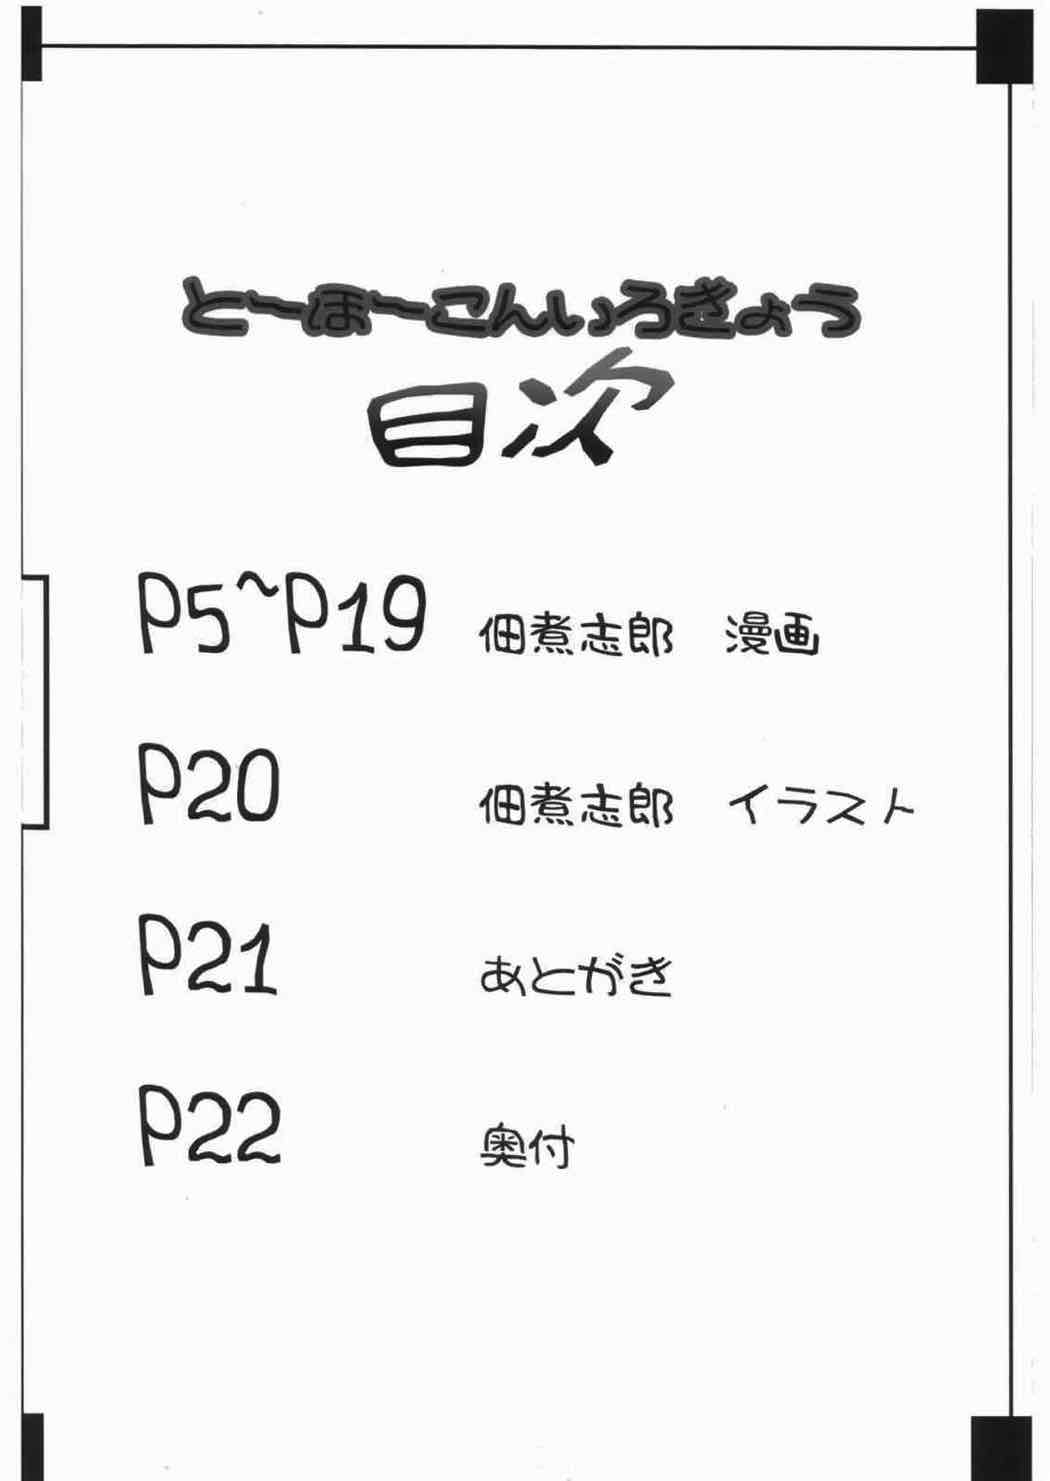 とーほーこんいろぎょう
目次
P5~P19 佃煮志郎 漫画
P20 佃煮志郎 イラスト
P21 あとがき
P22 奥付